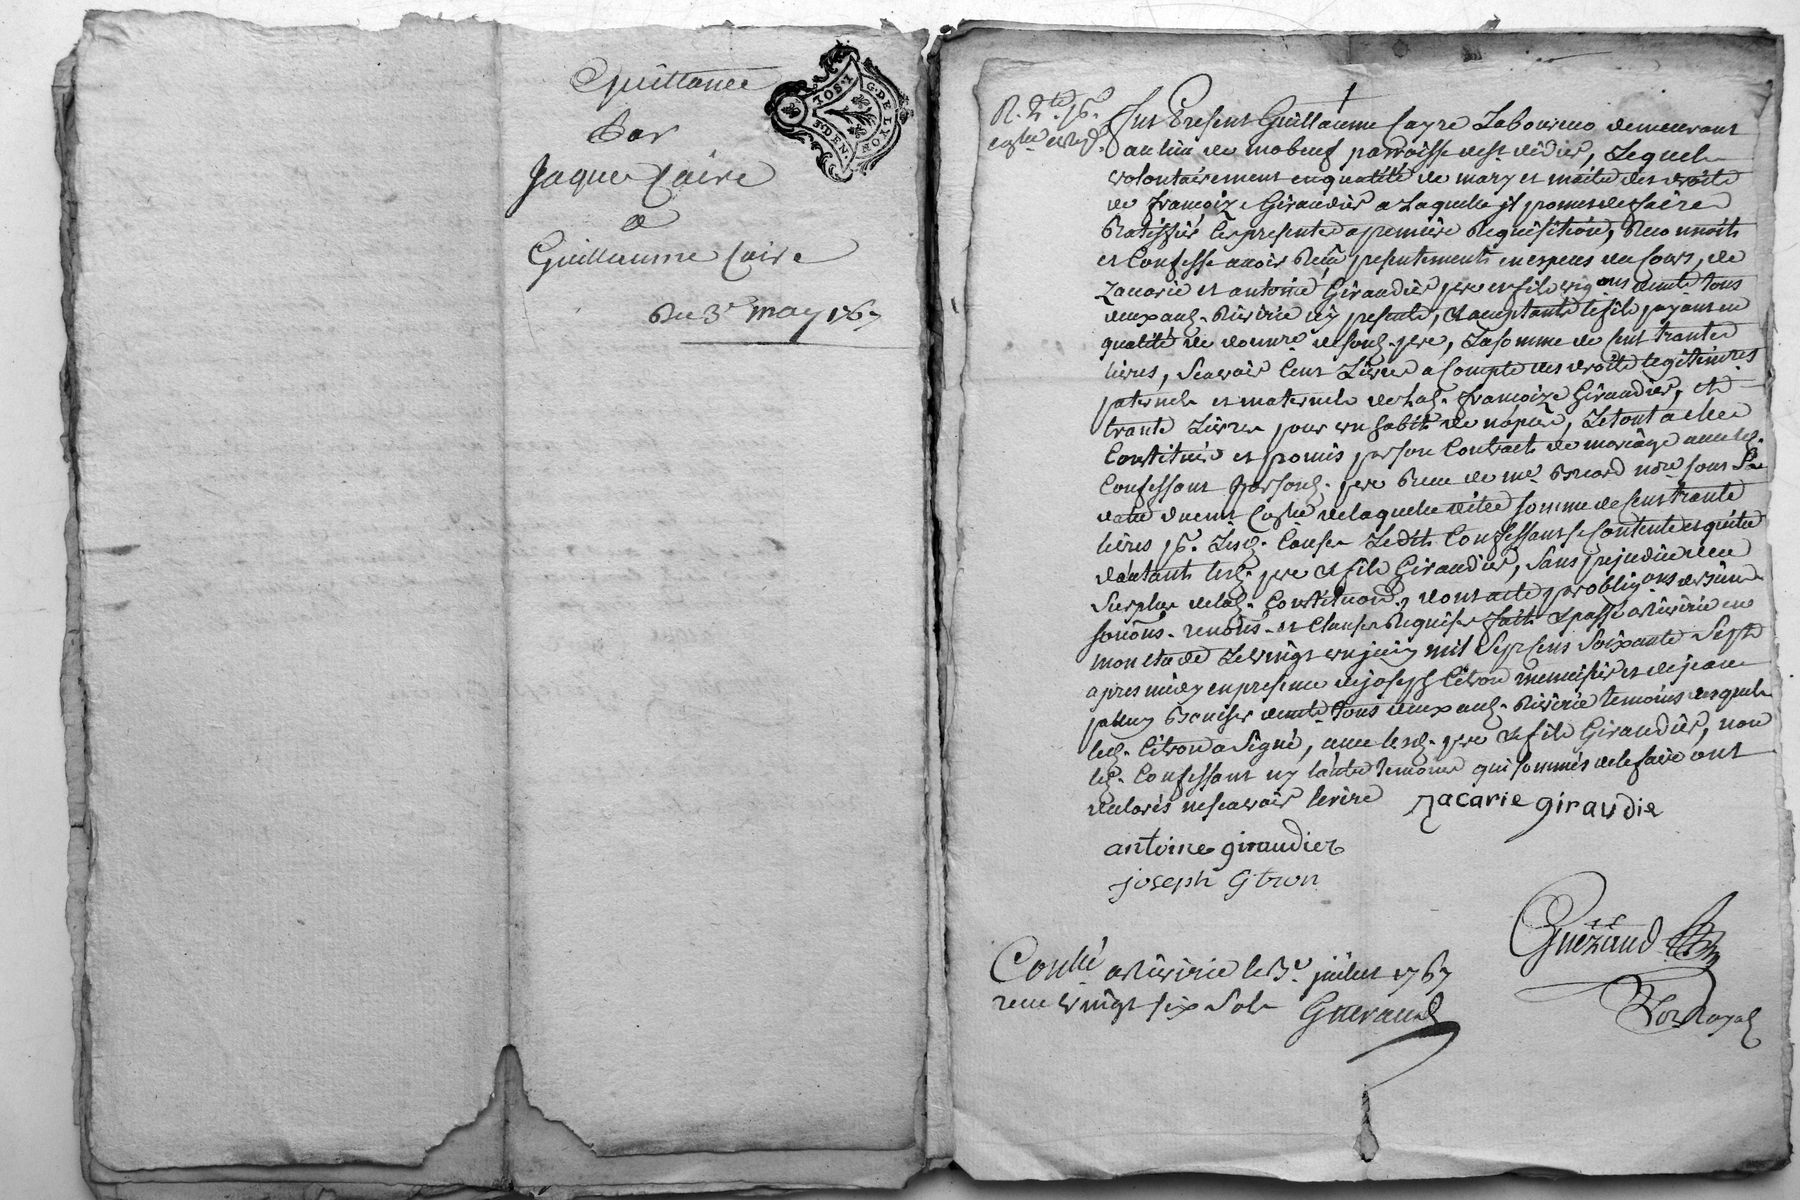 Quittance
Par
Jaque Caire
a
Guillaume Caire
Du 3e may 1767
G. DE LYON
10S. 1
Fut Present Guillaume Cayre Laboureur demeurant
au lieu de mobeuf parroisse de st didier, Lequel
volontairement en qualité de mary et maitre des droits
de françoize Giraudier a Laquelle jl promet de faire
Ratiffier les presentes a premiere Requisition, Reconnoit
et Confesse avoir Reçu presentement en especes du Cours, de
Zacarie et antoine Giraudier pere et fils vigons demts tous
deux aud. Riverie icy presents, et acceptants le fils payant en
qualité de donnre de sond. pere, La somme de Cent trante
livres, Scavoir Cent Livres a Compte des droits legitimres
paternels et maternels de Lad. françoize Giraudier, et
trante Livres pour un habit de nopce, Le tout a elle
Constitué et promis par son Contract de mariage avec led.
Confessant par sond. pere Receu de me Brard nore sous Sa
datte duement Conlle de laquelle ditte somme de Cent trante
livres pr. Lesd. Causes Ledit Confessant se Contente et quitte
d'autant lesd. pere et fils Giraudier, Sans prejudice du
Surplus de lad. Constitution, dont acte par obligons
soumons. renons. et Clauses Requises fait et passé a Riverie en
mon etude Le vingt un juin mil Sept Cens Soixante Sept
apres midy en presence de joseph Citron menuisier et de jean
demts tous deux aud. Riverie temoins desquels
led. Citron a Signé, avec lesd. pere et fils Giraudier, non
led. Confessant ny l'autre temoin qui sommés de le faire ont
declarés ne scavoir Ecrire zacarie giraudie
antoine giraudier
joseph Citron
Gueraud
Nore Royal
Conllé a Riverie le 3e juillet 1767
receu vingt six sols Gueraud